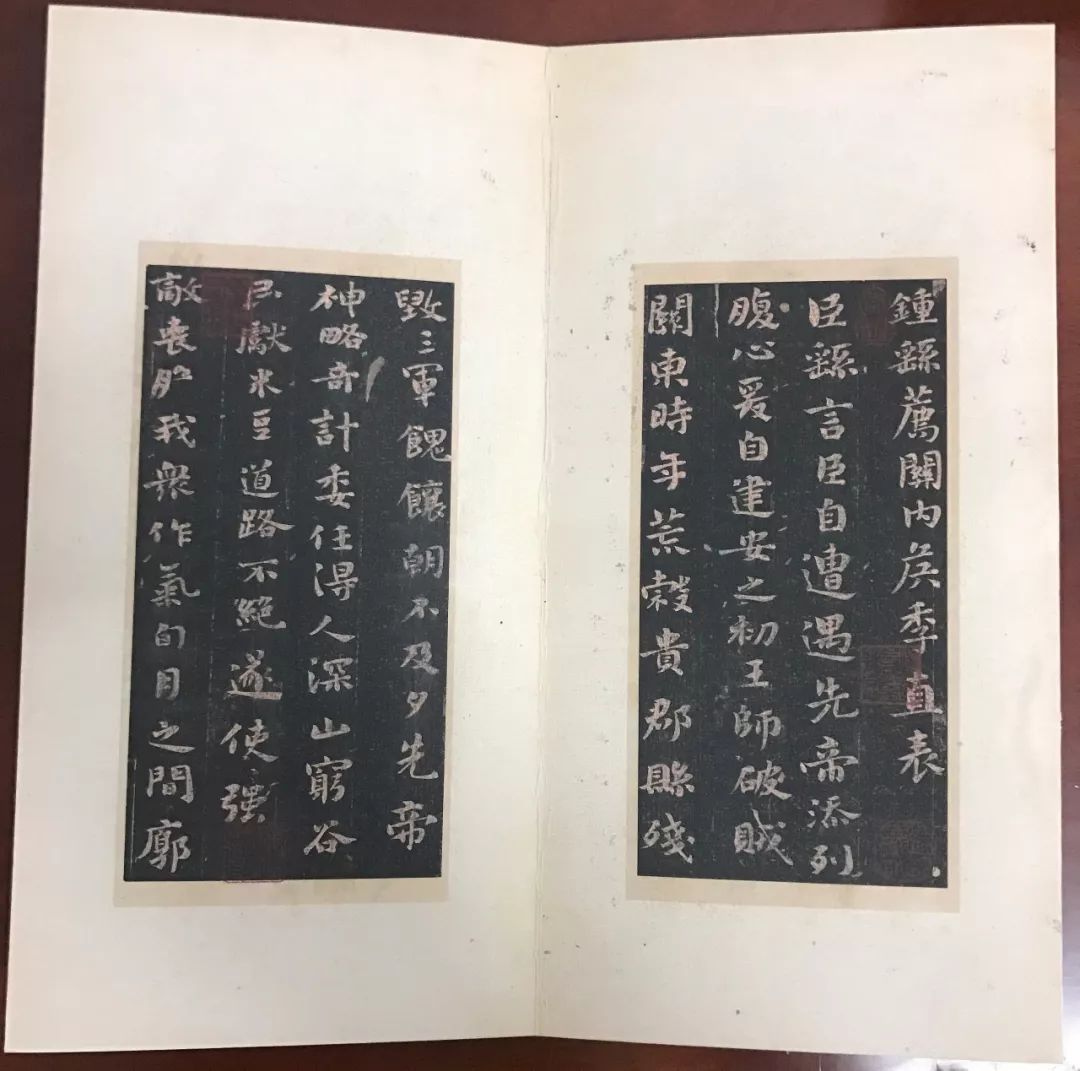 鍾繇薦關內侯季直表
臣繇言臣自遭遇先帝添列
腹心爰自建安之初王師破賊
關東時年荒榖貴郡縣殘
毀三軍餽饟朝不及夕先帝
神略奇計委任得人深山窮谷
民獻米豆道路不絕遂使強
敵喪膽我衆作氣旬月之間廓